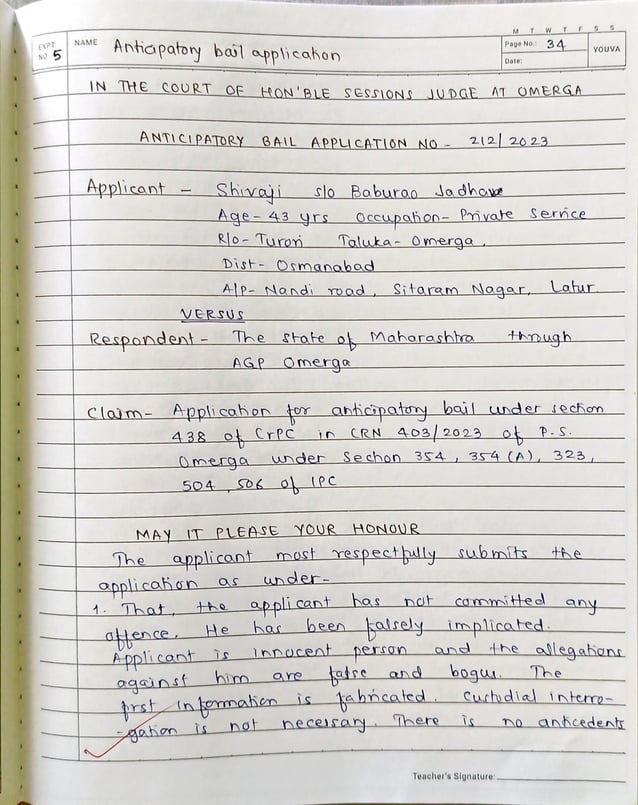 M T W T F S S
EXPT. NO. 5 NAME Anticipatory bail application Page No.: 34 YOUVA
Date:
IN THE COURT OF HON'BLE SESSIONS JUDGE AT OMERGA
ANTICIPATORY BAIL APPLICATION NO - 212/2023
Applicant - Shivaji s/o Baburao Jadhav
Age- 43 yrs Occupation- Private Service
R/o- Turori Taluka- Omerga,
Dist- Osmanabad
A/P- Nandi road, Sitaram Nagar, Latur.
VERSUS
Respondent - The state of Maharashtra through
AGP Omerga
Claim- Application for anticipatory bail under section
438 of CrPC in CRN 403/2023 of P.S.
Omerga under Section 354, 354 (A), 323,
504, 506 of IPC
MAY IT PLEASE YOUR HONOUR
The applicant most respectfully submits the
application as under-
1. That, the applicant has not committed any
offence. He has been falsely implicated.
Applicant is innocent person and the allegations
against him are false and bogus. The
first information is fabricated. Custodial interro-
-gation is not necessary. There is no anticedents
Teacher's Signature: